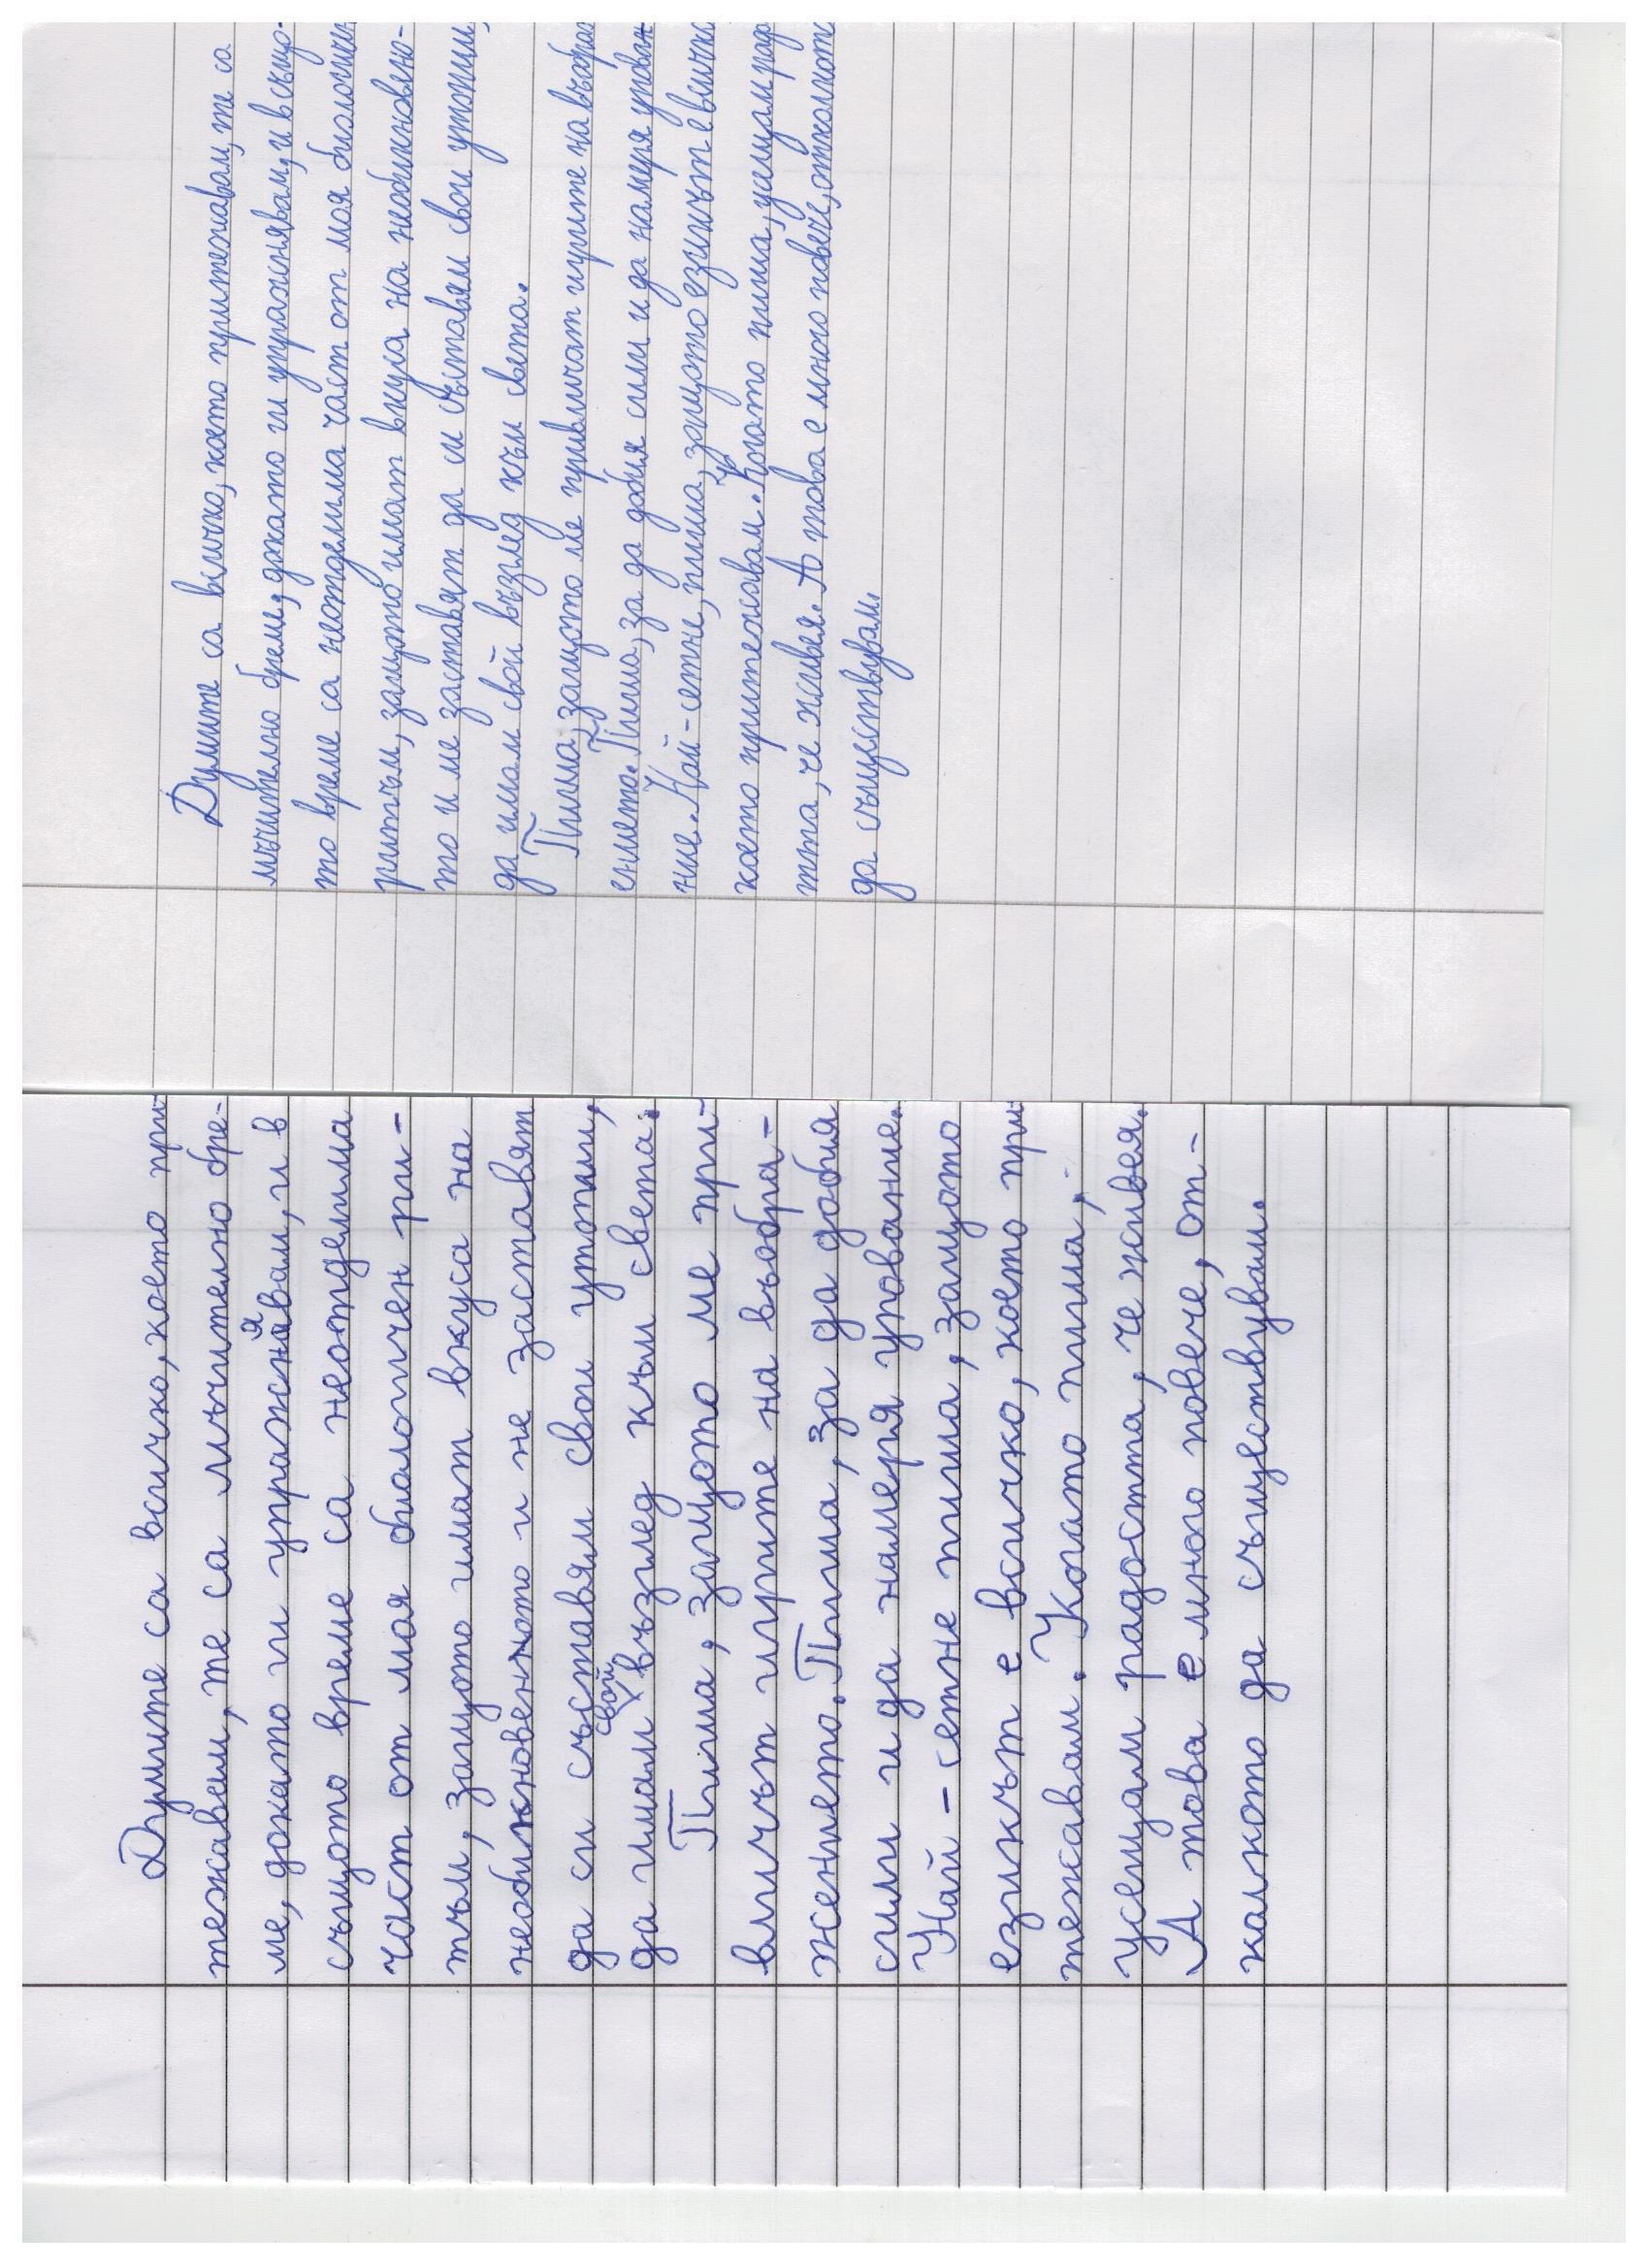 Думите са всичко, което при-
тежавам, те са мъчително бре-
ме, докато ги упражнявам, и в
същото време са неотделима
част от моя биологичен ри-
тъм, защото имат вкуса на
необикновеното и не заставят
да си съставям свои утопии,
да имам свой възглед към света.
Пиша, защото ме при-
вличат игрите на въобра-
жението. Пиша, за да добия
сили и да намеря упование.
Най-сетне пиша, защото
езикът е всичко, което при-
тежавам. Когато пиша,
усещам радостта, че живея.
А това е много повече, от-
колкото да съществувам.
Думите са всичко, което притежавам, те са
мъчително бреме, докато ги упражнявам, и в също-
то време са неотделима част от моя биологичен
ритъм, защото имат вкуса на необикновено-
то и ме заставят да си съставям свои утопии,
да имам свой възглед към света.
Пиша, защото ме привличат игрите на въображ
ението. Пиша, за да добия сили и да намеря упован
ние. Най-сетне, пиша, защото езикът е всичко
което притежавам. Когато пиша, усещам рад
тта, че живея. А това е много повече, отколкото
да съществувам.